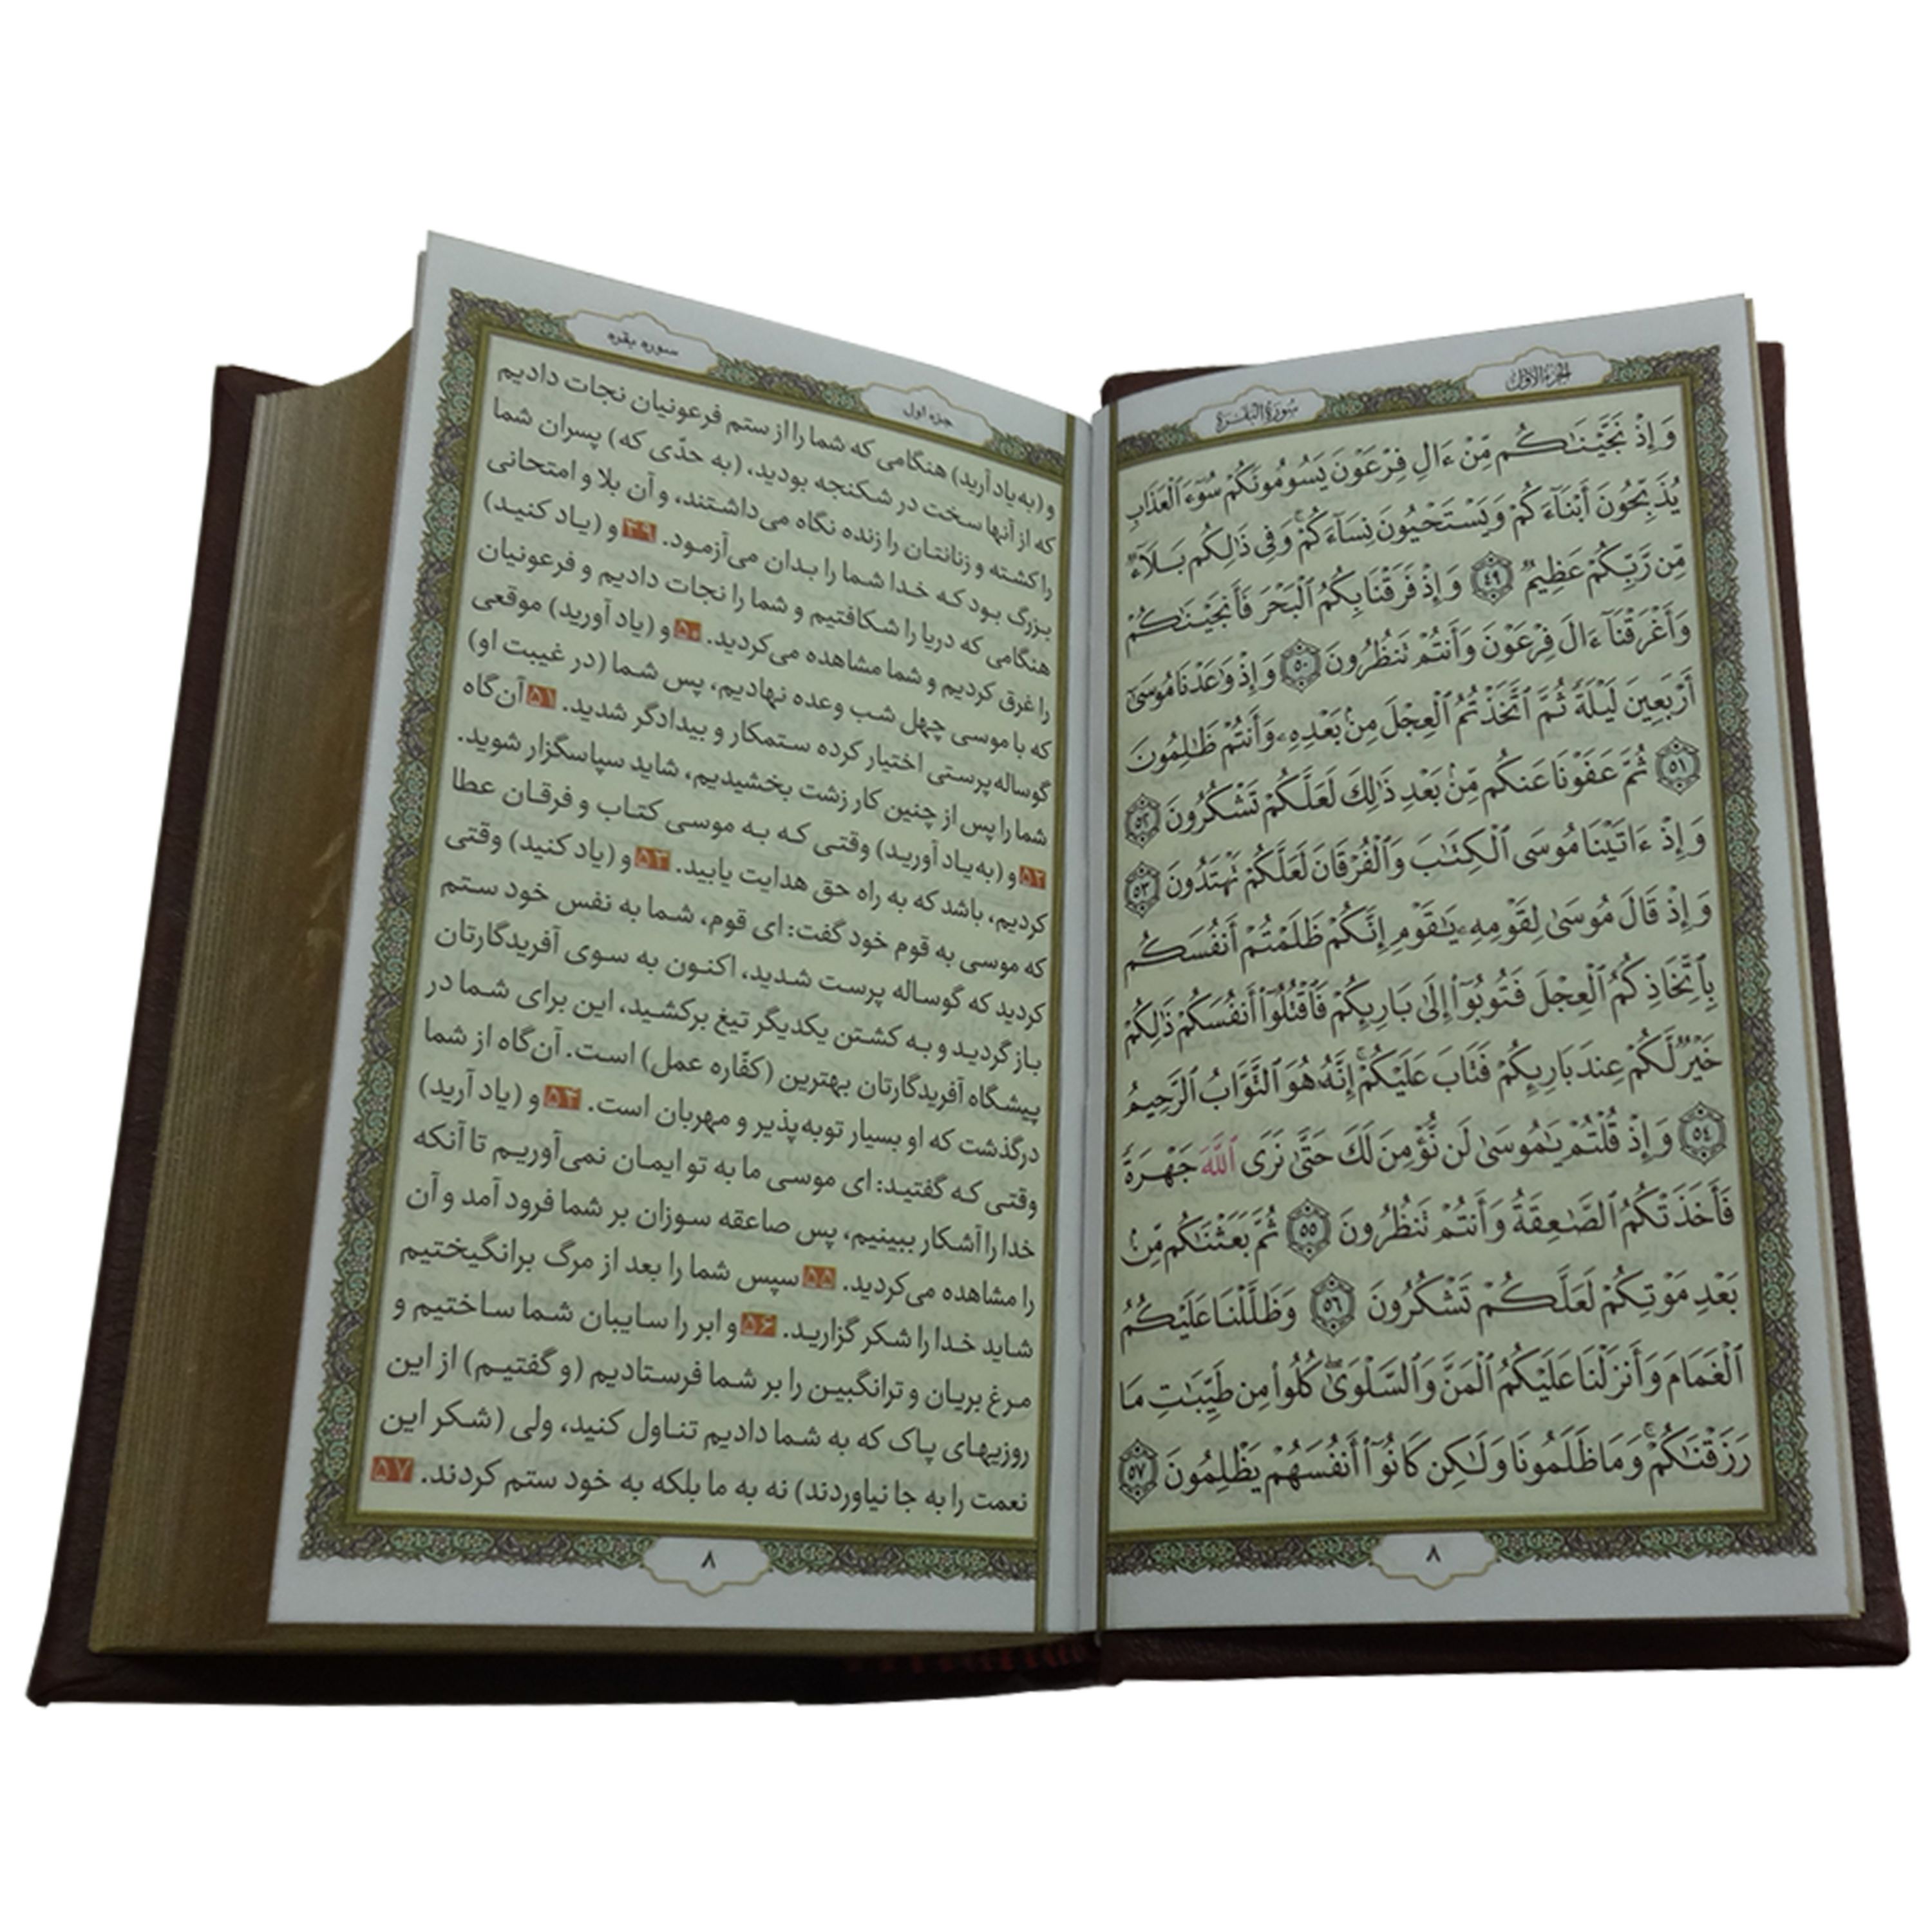 الجزء الاول
سورة البقرة
وَإِذْ نَجَّيْنَـٰكُم مِّنْ ءَالِ فِرْعَوْنَ يَسُومُونَكُمْ سُوٓءَ ٱلْعَذَابِ
يُذَبِّحُونَ أَبْنَآءَكُمْ وَيَسْتَحْيُونَ نِسَآءَكُمْ ۚ وَفِى ذَٰلِكُم بَلَآءٌ
مِّن رَّبِّكُمْ عَظِيمٌ ٤٩ وَإِذْ فَرَقْنَا بِكُمُ ٱلْبَحْرَ فَأَنجَيْنَـٰكُمْ
وَأَغْرَقْنَآ ءَالَ فِرْعَوْنَ وَأَنتُمْ تَنظُرُونَ ٥٠ وَإِذْ وَٰعَدْنَا مُوسَىٰٓ
أَرْبَعِينَ لَيْلَةً ثُمَّ ٱتَّخَذْتُمُ ٱلْعِجْلَ مِنۢ بَعْدِهِۦ وَأَنتُمْ ظَـٰلِمُونَ
٥١ ثُمَّ عَفَوْنَا عَنكُم مِّنۢ بَعْدِ ذَٰلِكَ لَعَلَّكُمْ تَشْكُرُونَ ٥٢
وَإِذْ ءَاتَيْنَا مُوسَى ٱلْكِتَـٰبَ وَٱلْفُرْقَانَ لَعَلَّكُمْ تَهْتَدُونَ ٥٣
وَإِذْ قَالَ مُوسَىٰ لِقَوْمِهِۦ يَـٰقَوْمِ إِنَّكُمْ ظَلَمْتُمْ أَنفُسَكُم
بِٱتِّخَاذِكُمُ ٱلْعِجْلَ فَتُوبُوٓا۟ إِلَىٰ بَارِئِكُمْ فَٱقْتُلُوٓا۟ أَنفُسَكُمْ ذَٰلِكُمْ
خَيْرٌ لَّكُمْ عِندَ بَارِئِكُمْ فَتَابَ عَلَيْكُمْ ۚ إِنَّهُۥ هُوَ ٱلتَّوَّابُ ٱلرَّحِيمُ
٥٤ وَإِذْ قُلْتُمْ يَـٰمُوسَىٰ لَن نُّؤْمِنَ لَكَ حَتَّىٰ نَرَى ٱللَّهَ جَهْرَةً
فَأَخَذَتْكُمُ ٱلصَّـٰعِقَةُ وَأَنتُمْ تَنظُرُونَ ٥٥ ثُمَّ بَعَثْنَـٰكُم مِّنۢ
بَعْدِ مَوْتِكُمْ لَعَلَّكُمْ تَشْكُرُونَ ٥٦ وَظَلَّلْنَا عَلَيْكُمُ
ٱلْغَمَامَ وَأَنزَلْنَا عَلَيْكُمُ ٱلْمَنَّ وَٱلسَّلْوَىٰ ۖ كُلُوا۟ مِن طَيِّبَـٰتِ مَا
رَزَقْنَـٰكُمْ ۖ وَمَا ظَلَمُونَا وَلَـٰكِن كَانُوٓا۟ أَنفُسَهُمْ يَظْلِمُونَ ٥٧
٨
جزء اول
سوره بقره
و (به یاد آرید) هنگامی که شما را از ستم فرعونیان نجات دادیم
که از آنها سخت در شکنجه بودید، (به حدّی که) پسران شما
را کشته و زنانتان را زنده نگاه می‌داشتند، و آن بلا و امتحانی
بزرگ بود که خدا شما را بدان می‌آزمود. ۴۹ و (یاد کنید)
هنگامی که دریا را شکافتیم و شما را نجات دادیم و فرعونیان
را غرق کردیم و شما مشاهده می‌کردید. ۵۰ و (یاد آورید) موقعی
که با موسی چهل شب وعده نهادیم، پس شما (در غیبت او)
گوساله‌پرستی اختیار کرده ستمکار و بیدادگر شدید. ۵۱ آن‌گاه
شما را پس از چنین کار زشت بخشیدیم، شاید سپاسگزار شوید.
۵۲ و (به یاد آورید) وقتی که به موسی کتاب و فرقان عطا
کردیم، باشد که به راه حق هدایت یابید. ۵۳ و (یاد کنید) وقتی
که موسی به قوم خود گفت: ای قوم، شما به نفس خود ستم
کردید که گوساله پرست شدید، اکنون به سوی آفریدگارتان
باز گردید و به کشتن یکدیگر تیغ برکشید، این برای شما در
پیشگاه آفریدگارتان بهترین (کفّاره عمل) است. آن‌گاه از شما
درگذشت که او بسیار توبه‌پذیر و مهربان است. ۵۴ و (یاد آرید)
وقتی که گفتید: ای موسی ما به تو ایمان نمی‌آوریم تا آنکه
خدا را آشکار ببینیم، پس صاعقه سوزان بر شما فرود آمد و آن
را مشاهده می‌کردید. ۵۵ سپس شما را بعد از مرگ برانگیختیم
شاید خدا را شکر گزارید. ۵۶ و ابر را سایبان شما ساختیم و
مرغ بریان و ترانگبین را بر شما فرستادیم (و گفتیم) از این
روزیهای پاک که به شما دادیم تناول کنید، ولی (شکر این
نعمت را به جا نیاوردند) نه به ما بلکه به خود ستم کردند. ۵۷
۸